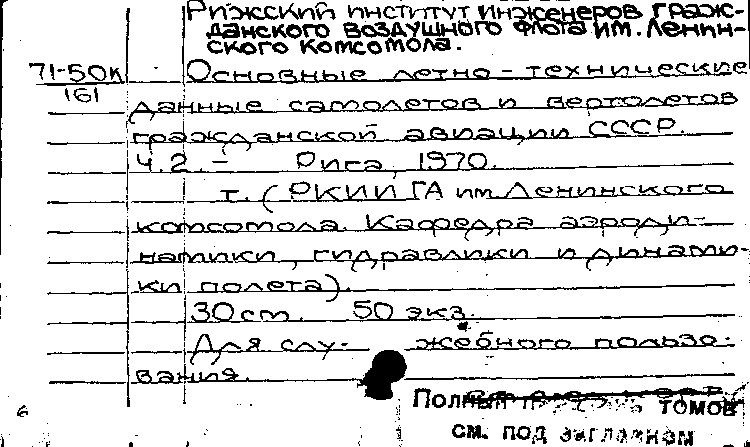 Рижский институт инженеров граж-
данского воздушного флота им. Ленин-
ского комсомола.
71-50к Основные летно-технические
161
данные самолетов и вертолетов
гражданской авиации СССР.
Ч.2.- Рига, 1970.
т. (РКИИГА им. Ленинского
комсомола. Кафедра аэроди-
намики, гидравлики и динами-
ки полета).
30см. 50 экз.
Для слу- жебного пользо-
вания.
Полный томов
6 см. под заглавием